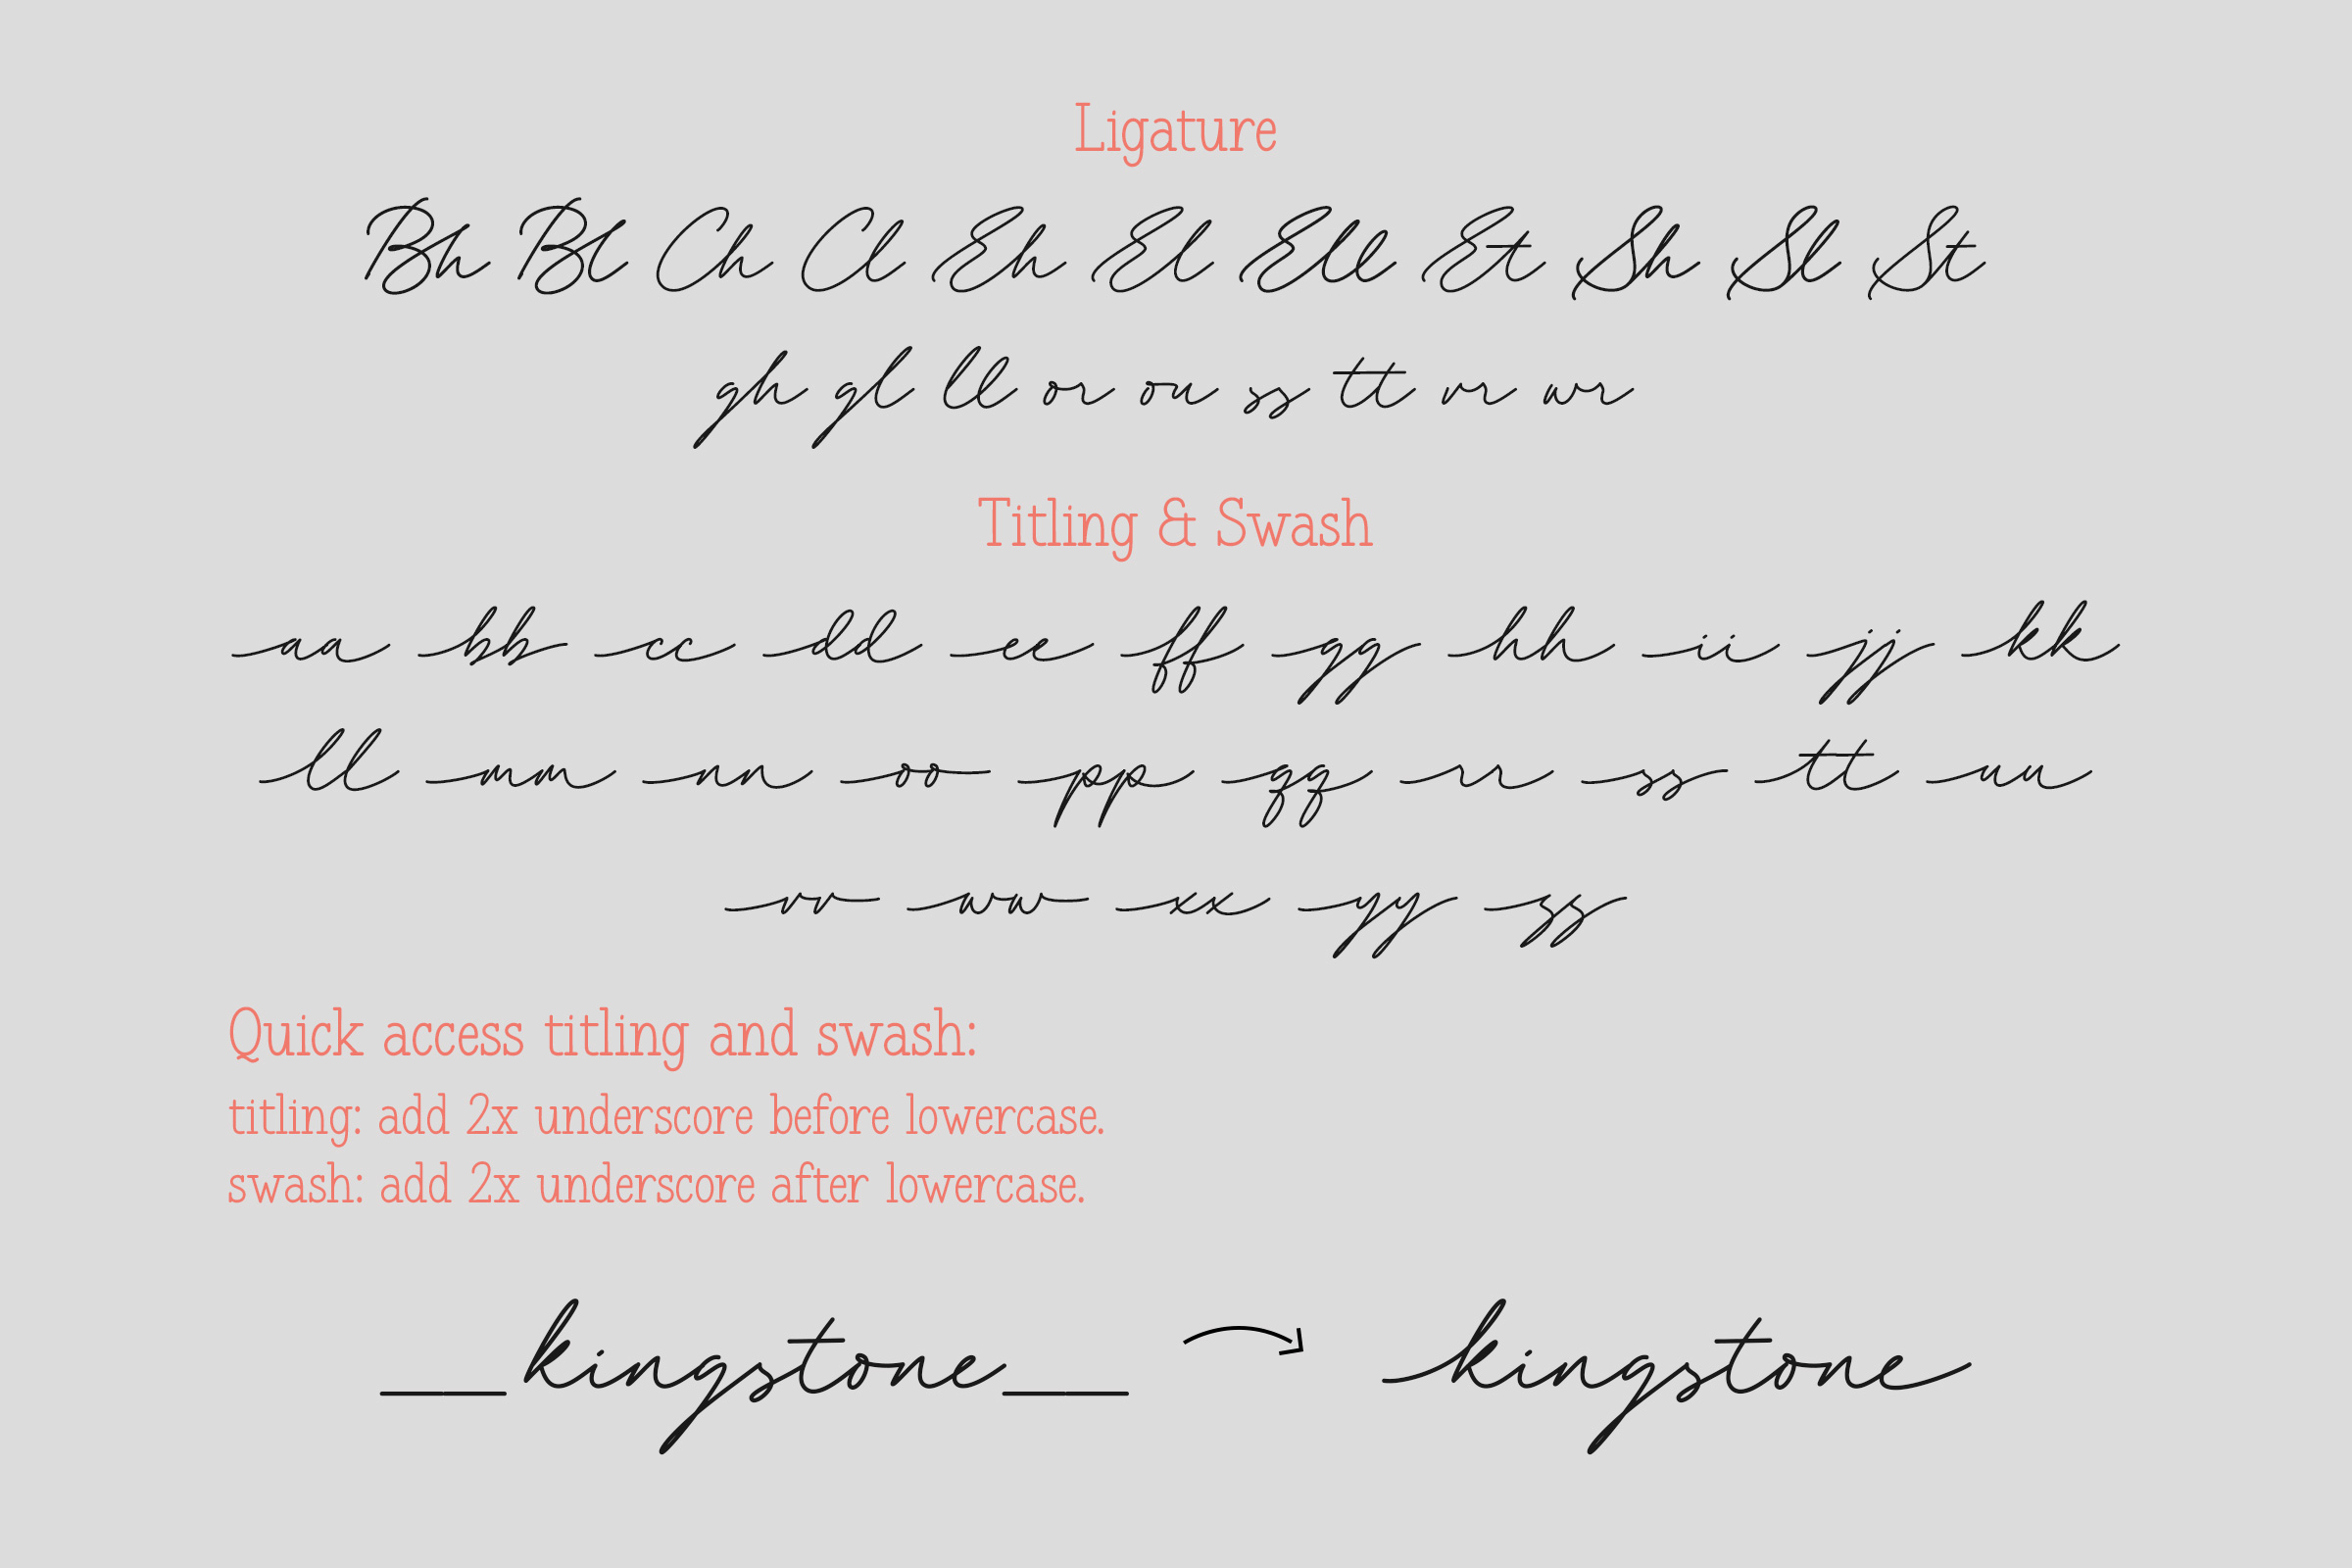 Ligature
Bh Bl Ch Cl Eh El Ell Et Sh Sl St
gh gl ll or ou ss tt vr wr
Titling & Swash
aa bb cc dd ee ff gg hh ii jj kk
ll mm nn oo pp qq rr ss tt uu
vv ww xx yy zz
Quick access titling and swash:
titling: add 2x underscore before lowercase.
swash: add 2x underscore after lowercase.
__kingstone__ kingstone